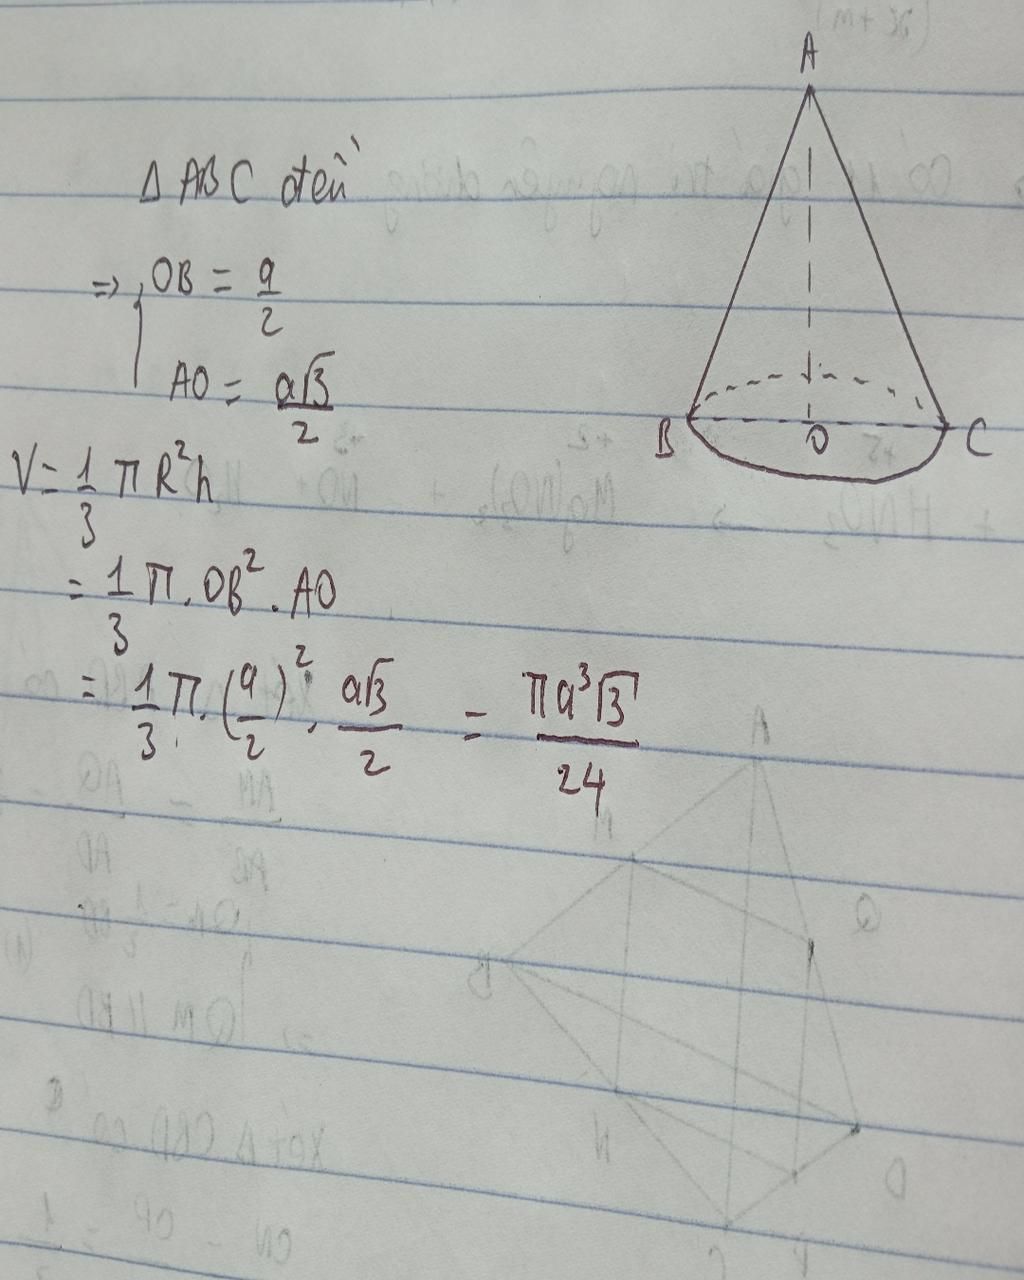 Δ ABC đều
⇒ OB = a/2
AO = a√3/2
V = 1/3 π R²h
= 1/3 π . OB² . AO
= 1/3 π . (a/2)² . a√3/2 = πa³√3/24
A
B
O
C